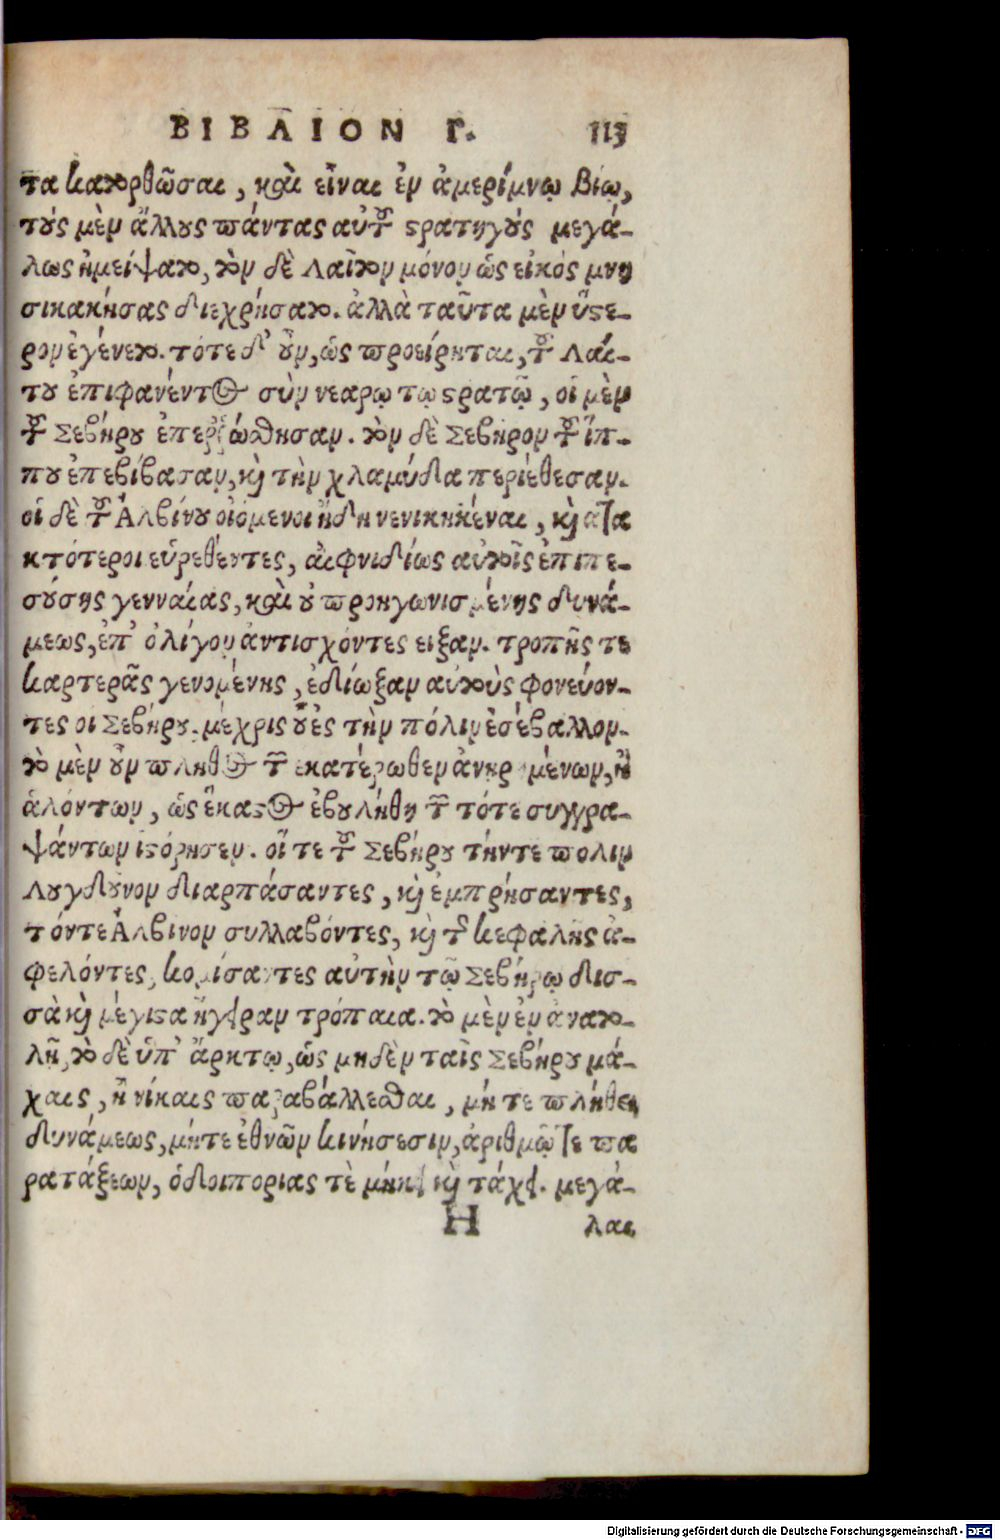 ΒΙΒΛΙΟΝ Γ. 113
τα κατορθῶσαι, καὶ εἶναι ἐν ἀμερίμνῳ βίῳ,
τοὺς μὲν ἄλλους πάντας αὐτοῦ στρατηγοὺς μεγά-
λως ἠμείψατο, τὸν δὲ Λαῖτον μόνον ὡς εἰκός μνη
σικακήσας διεχρήσατο. ἀλλὰ ταῦτα μὲν ὕστε-
ρον ἐγένετο. τότε δ' οὖν, ὡς προείρηται, τοῦ Λαί-
του ἐπιφανέντος σὺν νεαρῳ τῳ στρατῷ, οἱ μὲν
τοῦ Σεβήρου ἐπερρώσθησαν. τὸν δὲ Σεβῆρον τοῦ ἵπ-
που ἐπεβίβασαν, καὶ τὴν χλαμύδα περιέθεσαν.
οἱ δὲ τοῦ Ἀλβίνου οἰόμενοι ἤδη νενικηκέναι, καὶ ατα
κτότεροι εὑρεθέντες, αἰφνιδίως αὐτοῖς ἐπιπε-
σούσης γενναίας, καὶ οὐ προηγωνισμένης δυνά-
μεως, ἐπ' ὀλίγον ἀντισχόντες ειξαν. τροπῆς τε
καρτερᾶς γενομένης, ἐδίωξαν αὐτοὺς φονεύον-
τες οι Σεβήρου. μέχρις οὗ ἐς τὴν πόλιν ἐσέβαλλον.
τὸ μὲν οὖν πληθος τῶν ἑκατέρωθεν ἀνηρημένων, ἢ
ἁλόντων, ὡς ἕκαστος ἐβουλήθη τῶν τότε συγγρα-
ψάντων ιστόρησεν. οἵ τε τοῦ Σεβήρου τήντε πολιν
Λουγδουνον διαρπάσαντες, καὶ ἐμπρήσαντες,
τόντε Ἀλβινον συλλαβόντες, καὶ τῆς κεφαλῆς ἀ-
φελόντες, κομίσαντες αὐτὴν τῷ Σεβήρῳ δισ-
σὰ καὶ μέγιστα ἤγειραν τρόπαια. τὸ μὲν ἐν ἀνατο-
λῇ, τὸ δὲ ὑπ' ἄρκτῳ, ὡς μηδὲν ταῖς Σεβήρου μά-
χαις, ἢ νίκαις παραβάλλεσθαι, μήτε πλήθει
δυνάμεως, μήτε ἐθνῶν κινήσεσιν, ἀριθμῷ τε πα
ρατάξεων, ὁδοιπορίας τὲ μήκει καὶ τάχει. μεγά-
H λαι
Digitalisierung gefördert durch die Deutsche Forschungsgemeinschaft - DFG